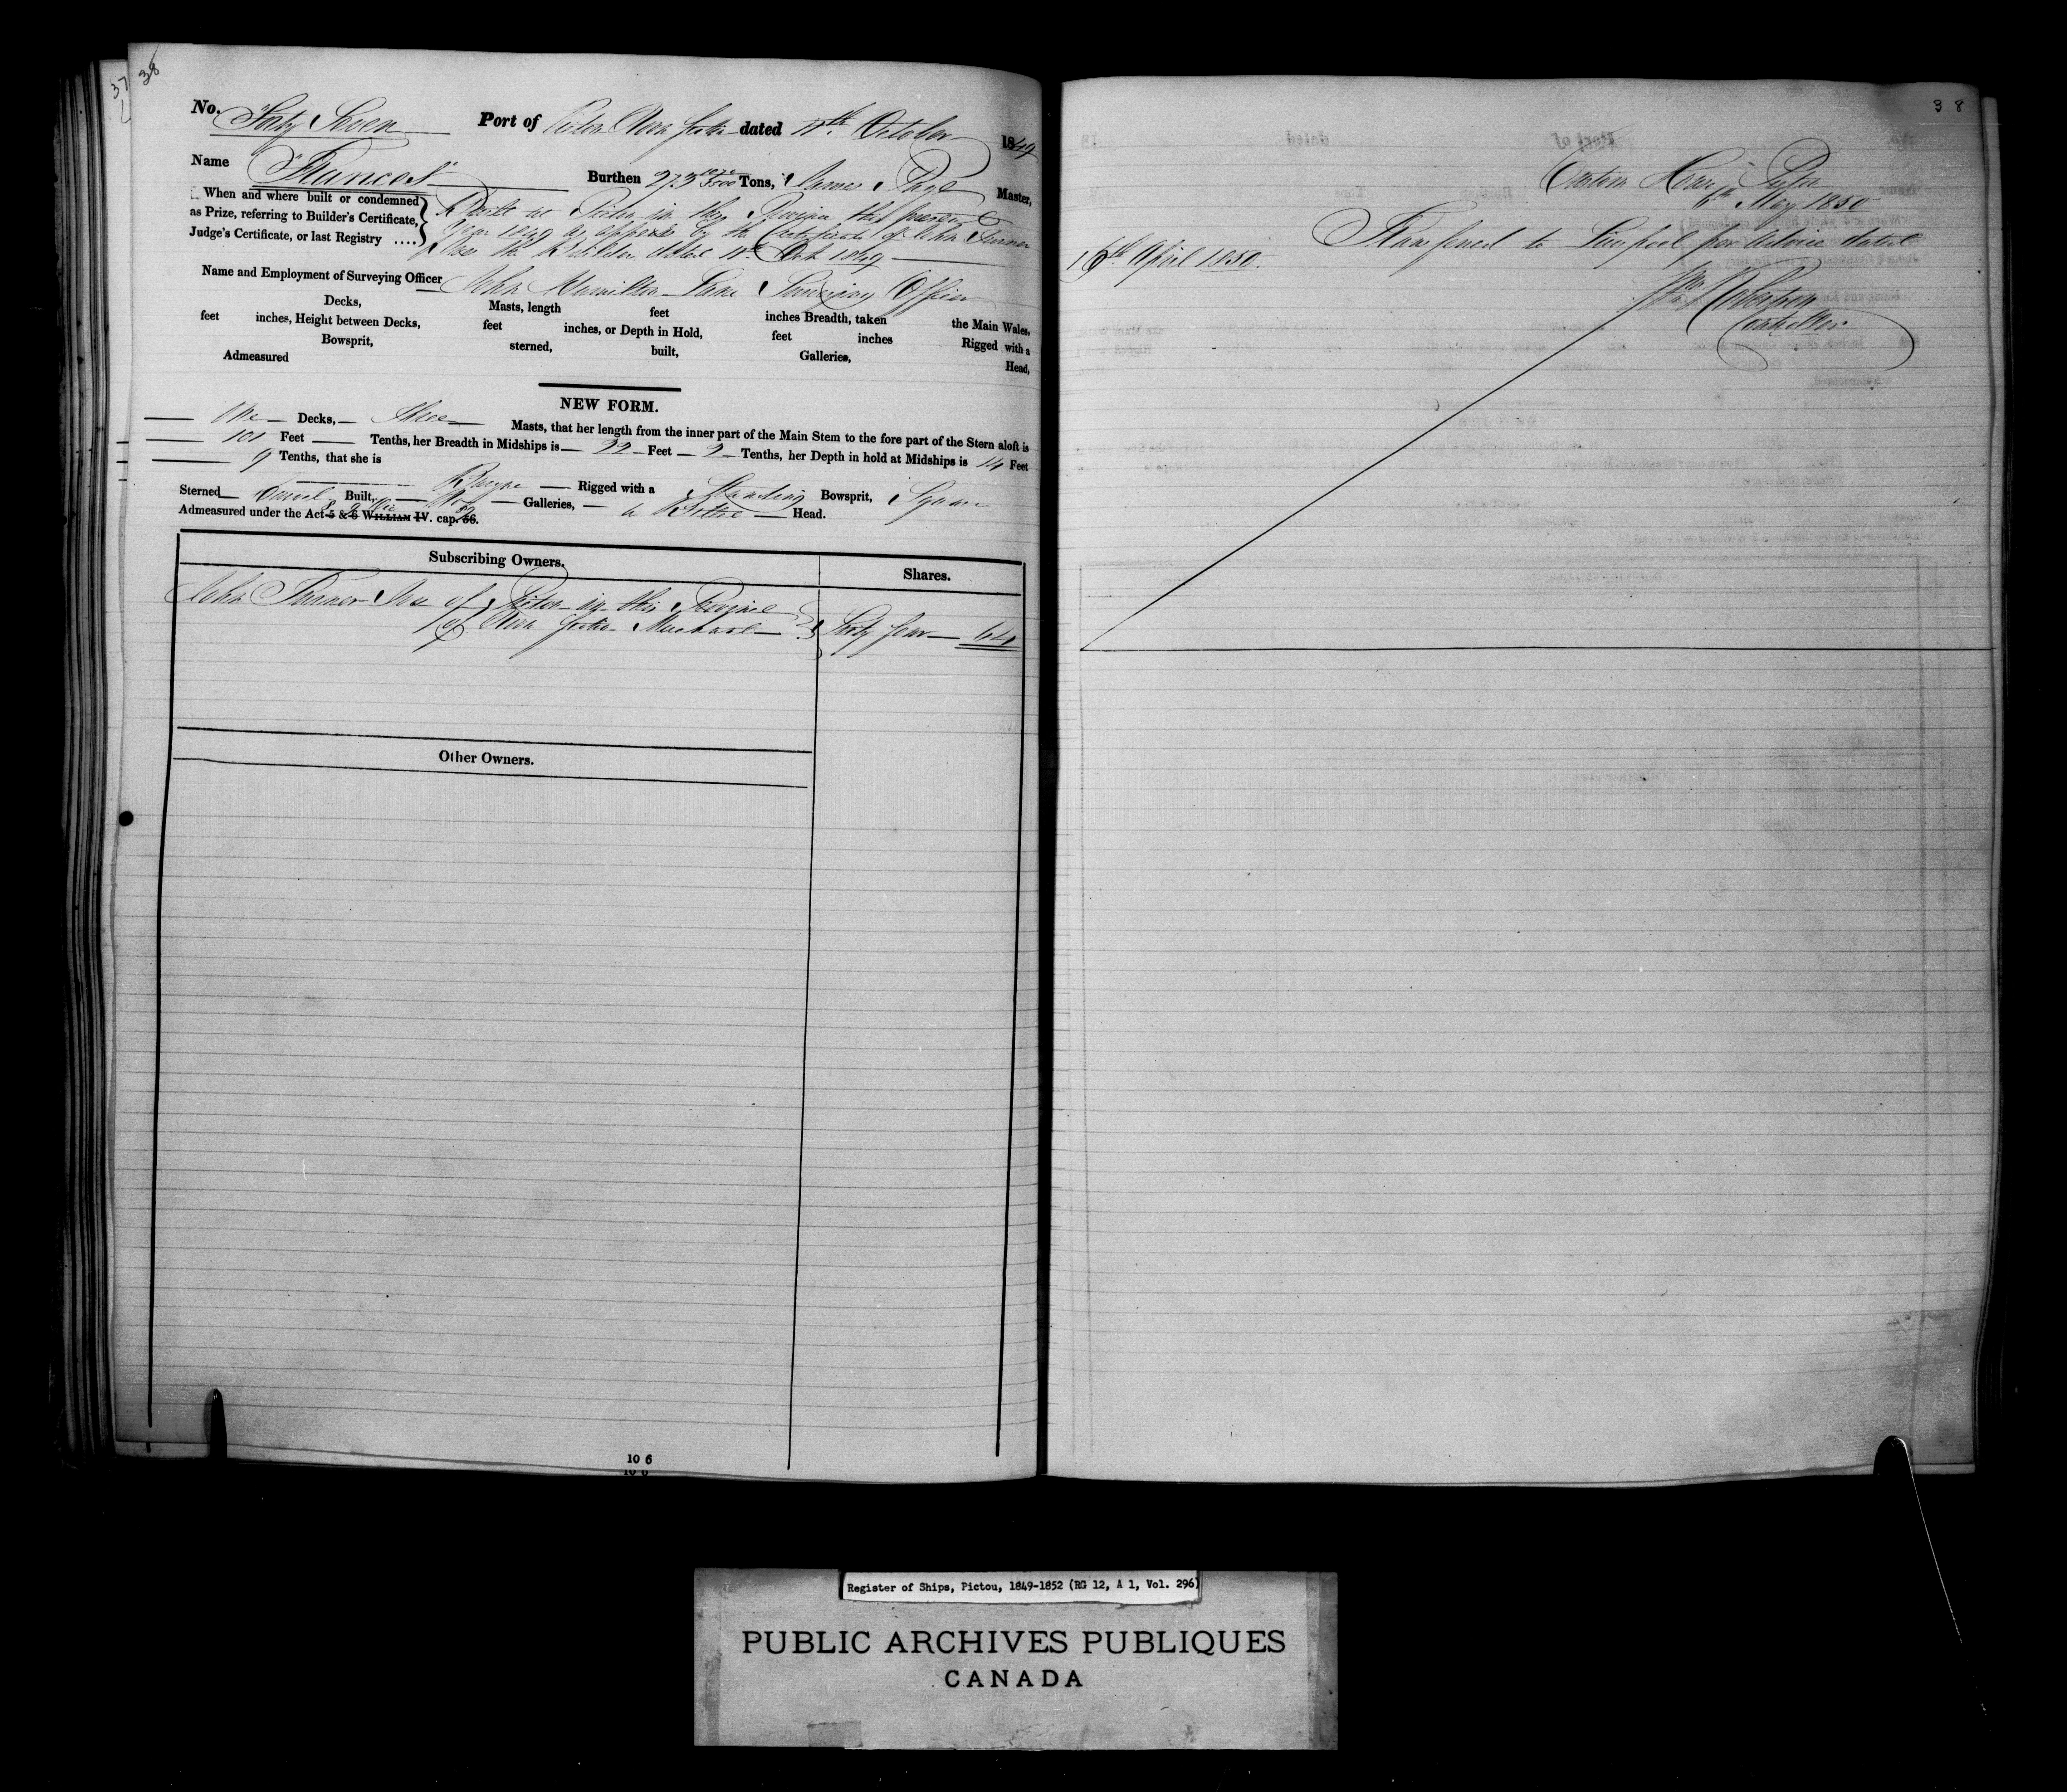 37
38
No. Forty Seven Port of Pictou Nova Scotia dated 11th October 1849
Name "Frances" Burthen 273 Tons, James Master,
When and where built or condemned
as Prize, referring to Builder's Certificate,
Judge's Certificate, or last Registry ....
Built at Pictou in this Province the present
Year 1849 as appears by the Certificate of John Turner
the Builder dated 11th Oct 1849
Name and Employment of Surveying Officer John Hamilton Lane Surveying Officer
Decks, Masts, length feet inches Breadth, taken the Main Wales,
feet inches, Height between Decks, feet inches, or Depth in Hold, feet inches Rigged with a
Bowsprit, sterned, built, Galleries, Head,
Admeasured
NEW FORM.
One Decks, Three Masts, that her length from the inner part of the Main Stem to the fore part of the Stern aloft is
101 Feet Tenths, her Breadth in Midships is 22 Feet 2 Tenths, her Depth in hold at Midships is 14 Feet
9 Tenths, that she is Barque Rigged with a Standing Bowsprit, Square
Sterned Carvel Built, No Galleries, a Billet Head.
Admeasured under the Act 5 & 6 WILLIAM IV. cap. 56.
8 & 9 Vic 89
Subscribing Owners. Shares.
John Turner of Pictou in this Province
of Nova Scotia Merchant Sixty four 64
Other Owners.
10 6
10 6
38
Custom House Pictou
6th May 1850
Transferred to Liverpool per Advice dated
16th April 1850.
Robertson
Controller
Register of Ships, Pictou, 1849-1852 (RG 12, A 1, Vol. 296)
PUBLIC ARCHIVES PUBLIQUES
CANADA